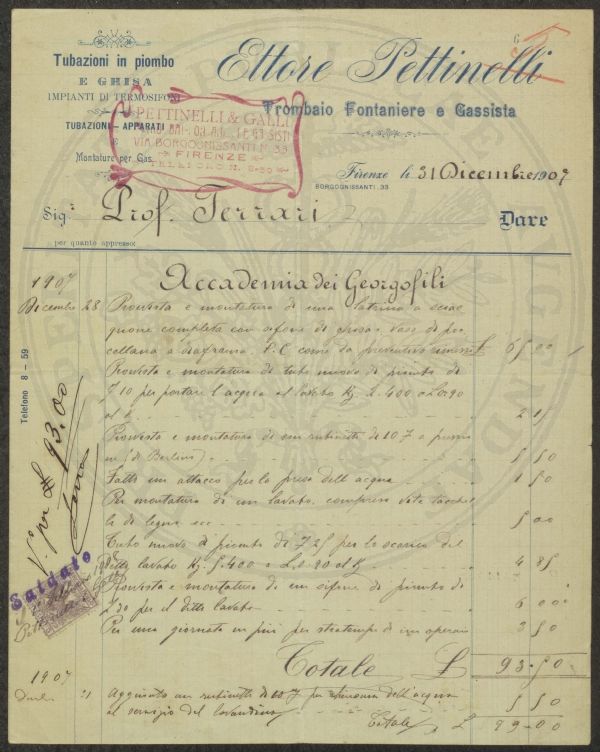 Tubazioni in piombo
E GHISA
IMPIANTI DI TERMOSIFONI
TUBAZIONI - APPARATI
E
Montature per Gas
Ettore Pettinelli
Trombaio Fontaniere e Gassista
PETTINELLI & GALLI
VIA BORGOGNISSANTI N. 33
FIRENZE
TELEFONO N. 8-59
Firenze li 31 Dicembre 1907
BORGOGNISSANTI. 33
Sig. Prof. Ferrari Dare
per quanto appresso:
Telefono 8 - 59
1907 Accademia dei Georgofili
Dicembre 28 Provvista e montatura di una latrina a sciac
quone completa con sifone di ghisa vaso di por
cellana a diaframma P.C come da preventivo rimesso £ 65 00
Provvista e montatura di tubo nuovo di piombo di
7 10 per portare l'acqua al lavabo Kg. 2.400 a £ 0.90
2 15
Provvista e montatura di un rubinetto di 10 7 a pressio
ne (di Berlino) 5 50
Fatto un attacco per la presa dell'acqua 1 50
Per montatura di un lavabo compreso viti tacchel
li di legno ecc 5 00
Tubo nuovo di piombo di 7 25 per lo scarico del
detto lavabo Kg. 5.400 a £ 0.90 al Kg 4 85
Provvista e montatura di un sifone di piombo di
£ 30 per il detto lavabo 6 00
Per una giornata in più per di un operaio 3 50
Totale £ 93.50
V.° per £ 93.00
Saldato
1907
31 Aggiunto un rubinetto di 10 7 per dell'acqua 5 50
al servizio del lavandino
Totale £ 99-00